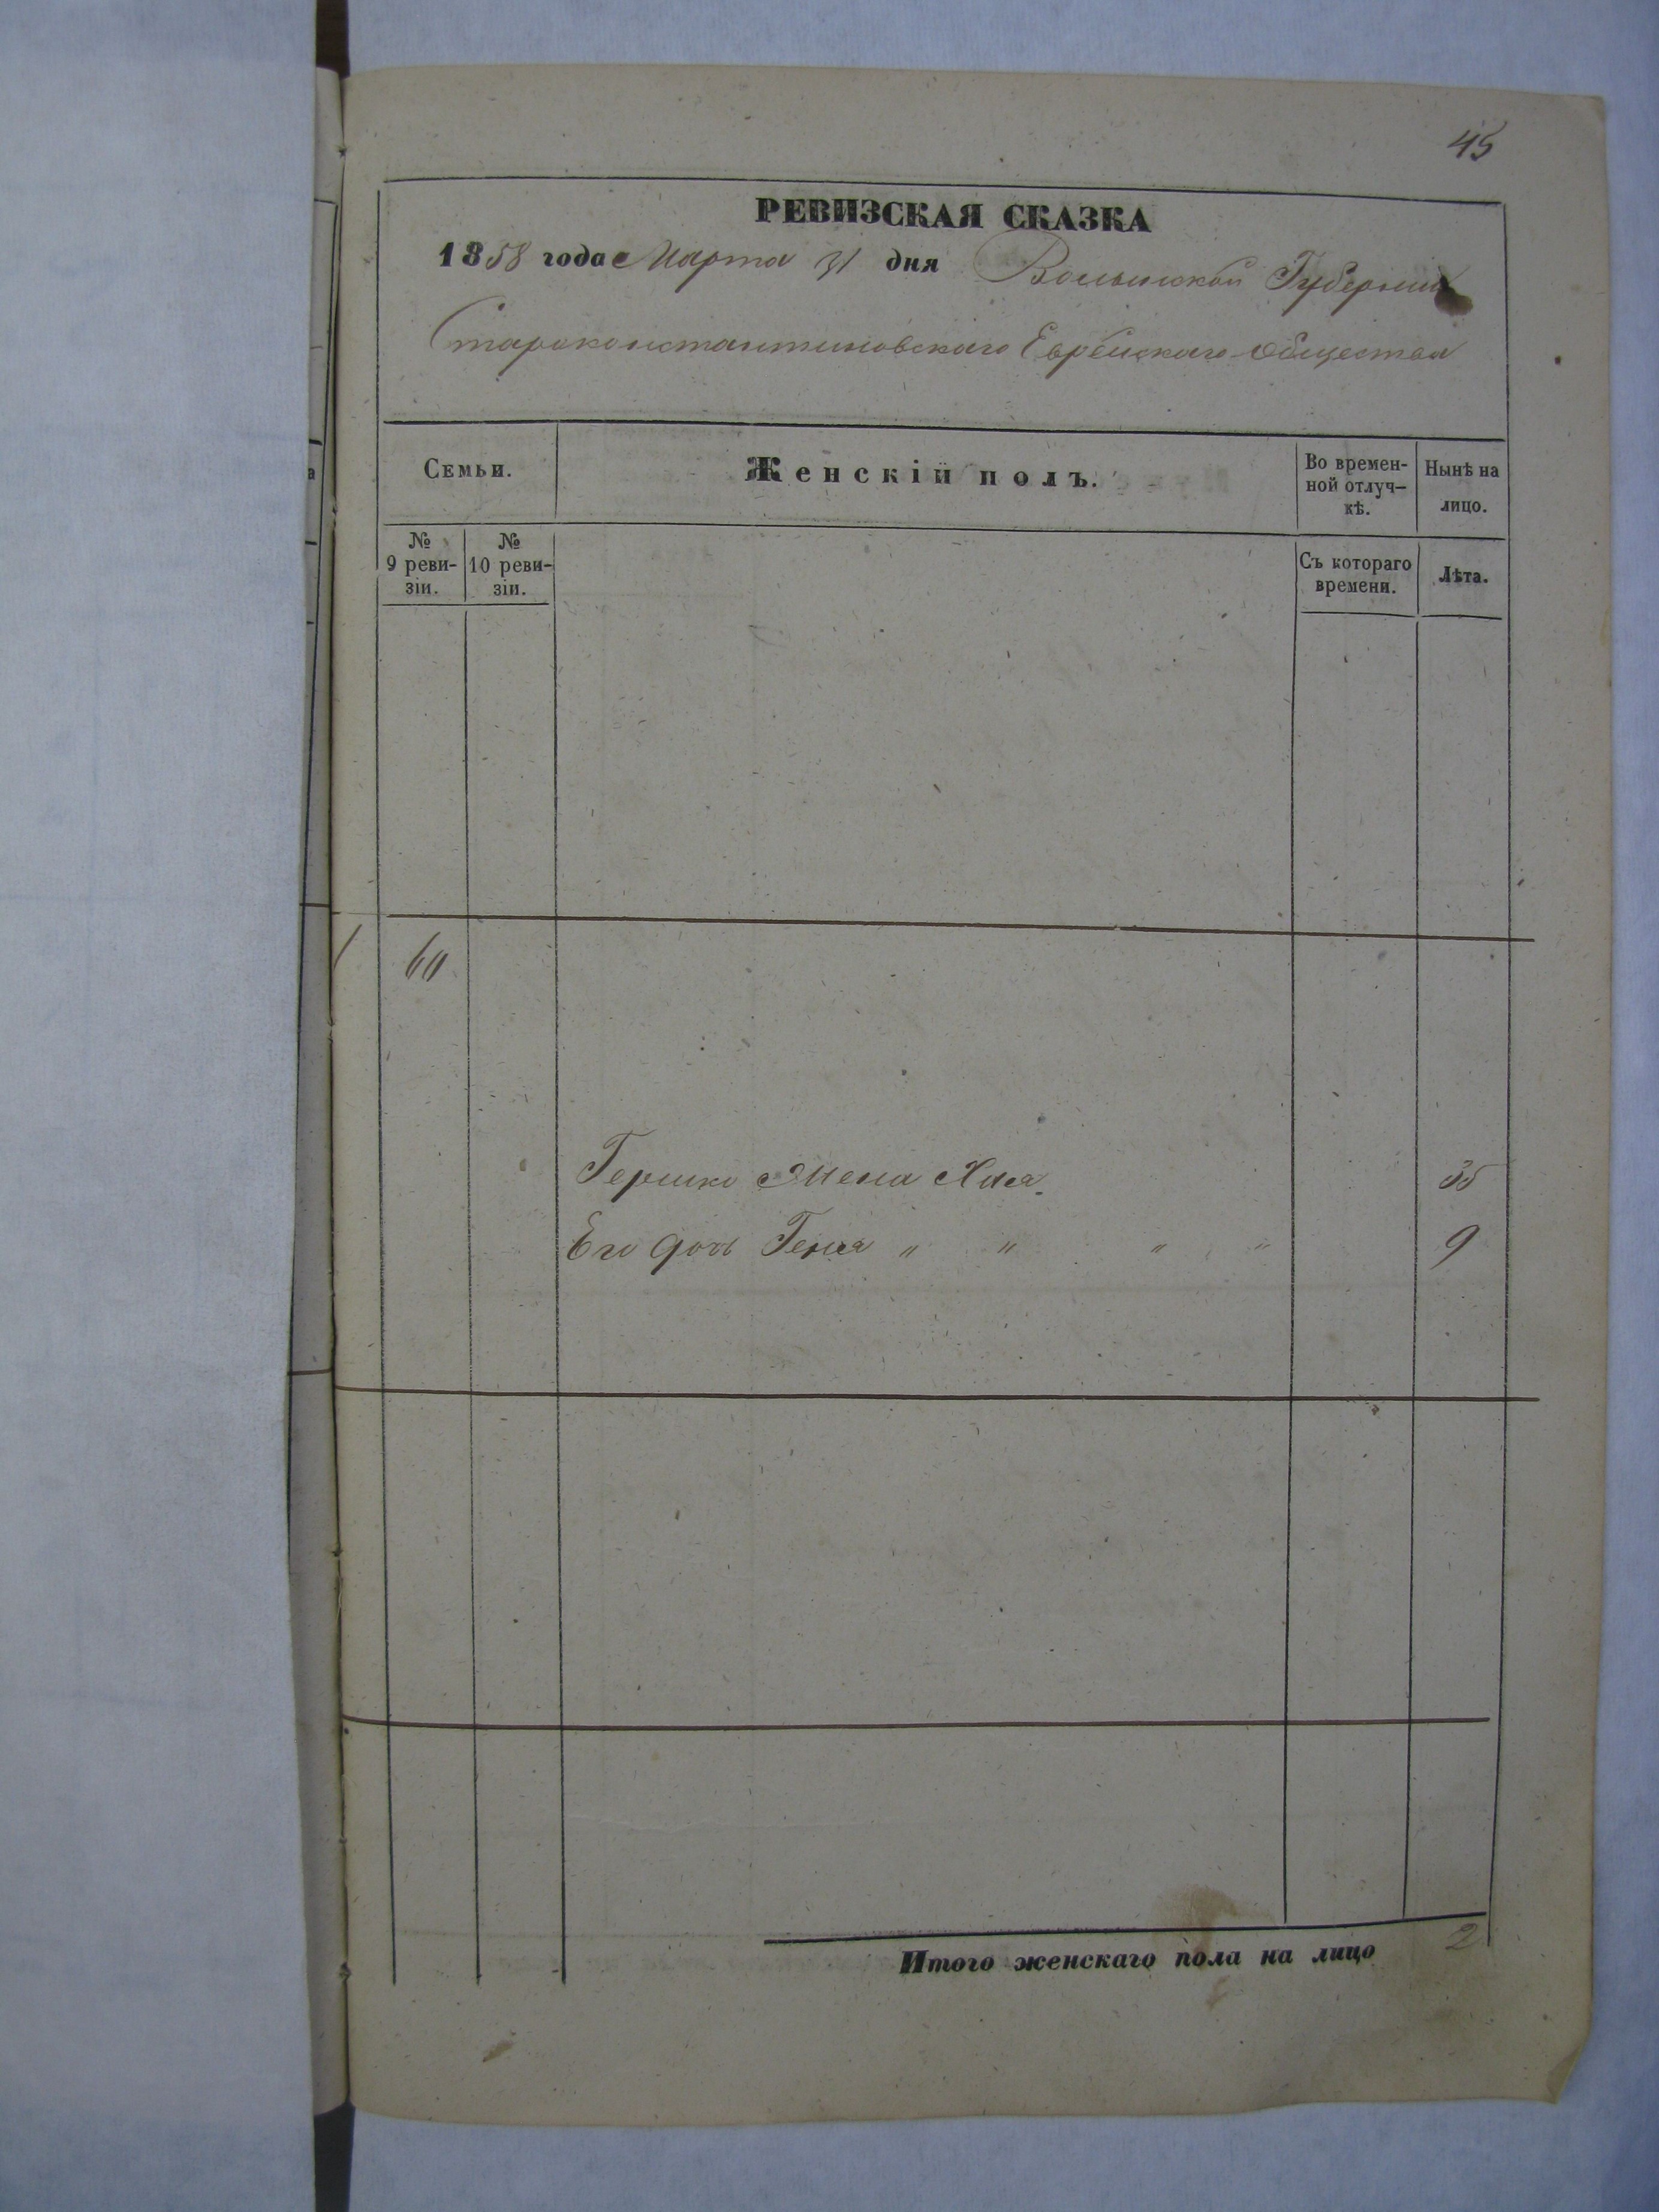 45
РЕВИЗСКАЯ СКАЗКА
1858 года Марта 31 дня Волынской Губернии
Староконстантиновскаго Еврейскаго Общества
Семьи.
Женскій полъ.
Во времен-
ной отлуч-
кѣ.
Нынѣ на
лицо.
№
9 реви-
зіи.
№
10 реви-
зіи.
Съ котораго
времени.
Лѣта.
60
Гершко Жена Хая 35
Его дочь Геня " " " " 9
Итого женскаго пола на лицо 2